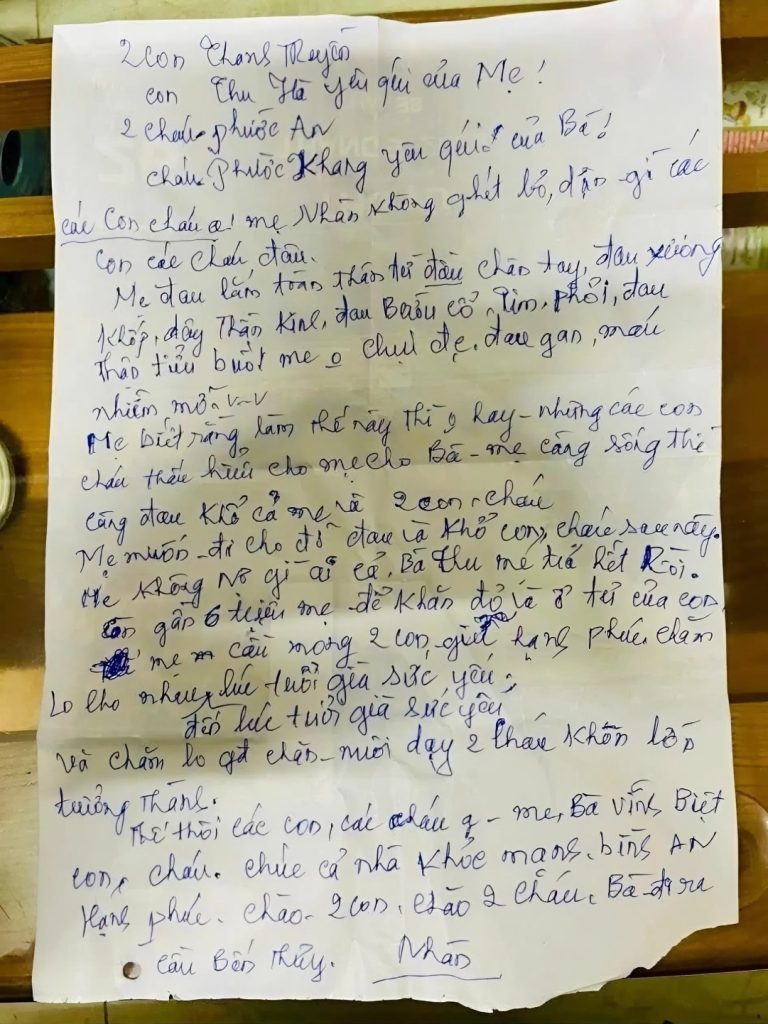 2 con Thanh Truyền
con Thu Hà yêu quí của Mẹ!
2 cháu phước AN
cháu Phước Khang yêu quí của Bà!
các Con cháu ạ! mẹ Nhàn không ghét bỏ, dận gì các
con các cháu đâu.
Mẹ đau lắm toàn thân từ đầu chân tay, đau xương
khớp, dây Thần Kinh, đau Bướu cổ, Tim, phổi, đau
thận tiểu buốt mẹ o chịu đc. đau gan, máu
nhiễm mỡ v-v
Mẹ biết rằng làm thế này thì o hay - nhưng các con
cháu thấu hiểu cho mẹ cho Bà - mẹ càng sống thì
càng đau khổ cả mẹ và 2 con, cháu
Mẹ muốn đi cho đỡ đau và khổ con, cháu sau này.
Mẹ không nợ gì ai cả, Bà Thu mẹ trả hết Rồi.
còn gần 6 triệu mẹ để khăn đỏ và ở tủ của con,
mẹ cầu mong 2 con giữ hạnh phúc chăm
Lo cho nhau, lúc tuổi già sức yếu.
đến lúc tuổi già sức yếu
và chăm lo gđ chăn nuôi dạy 2 cháu khôn lớn
trưởng thành.
Thế thôi các con, các cháu ạ - mẹ, Bà vĩnh Biệt
con, cháu. chúc cả nhà khỏe mạnh, bình AN
Hạnh phúc. chào 2 con, chào 2 cháu, Bà đi ra
cầu Bến Thủy. Nhàn